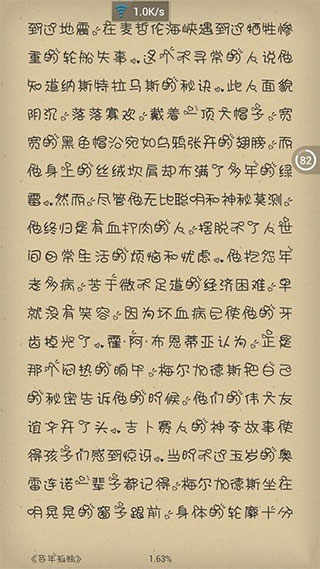 1.0K/s
到过地震,在麦哲伦海峡遇到过牺牲惨
重的轮船失事。这个不寻常的人说他
知道纳斯特拉马斯的秘诀。此人面貌
阴沉,落落寡欢,戴着一顶大帽子,宽
宽的黑色帽沿宛如乌鸦张开的翅膀,而
他身上的丝绒坎肩却布满了多年的绿
霉。然而,尽管他无比聪明和神秘莫测,
他终归是有血打肉的人,摆脱不了人世
间日常生活的烦恼和忧虑。他抱怨年
老多病,苦于微不足道的经济困难,早
就没有笑容,因为坏血病已使他的牙
齿掉光了。霍·阿·布恩蒂亚认为,正是
那个闷热的晌午,梅尔加德斯把自己
的秘密告诉他的时候,他们的伟大友
谊才开了头。吉卜赛人的神奇故事使
得孩子们感到惊讶。当时不过五岁的奥
雷连诺一辈子都记得,梅尔加德斯坐在
明晃晃的窗子跟前,身体的轮廓十分
82
《百年孤独》
1.63%